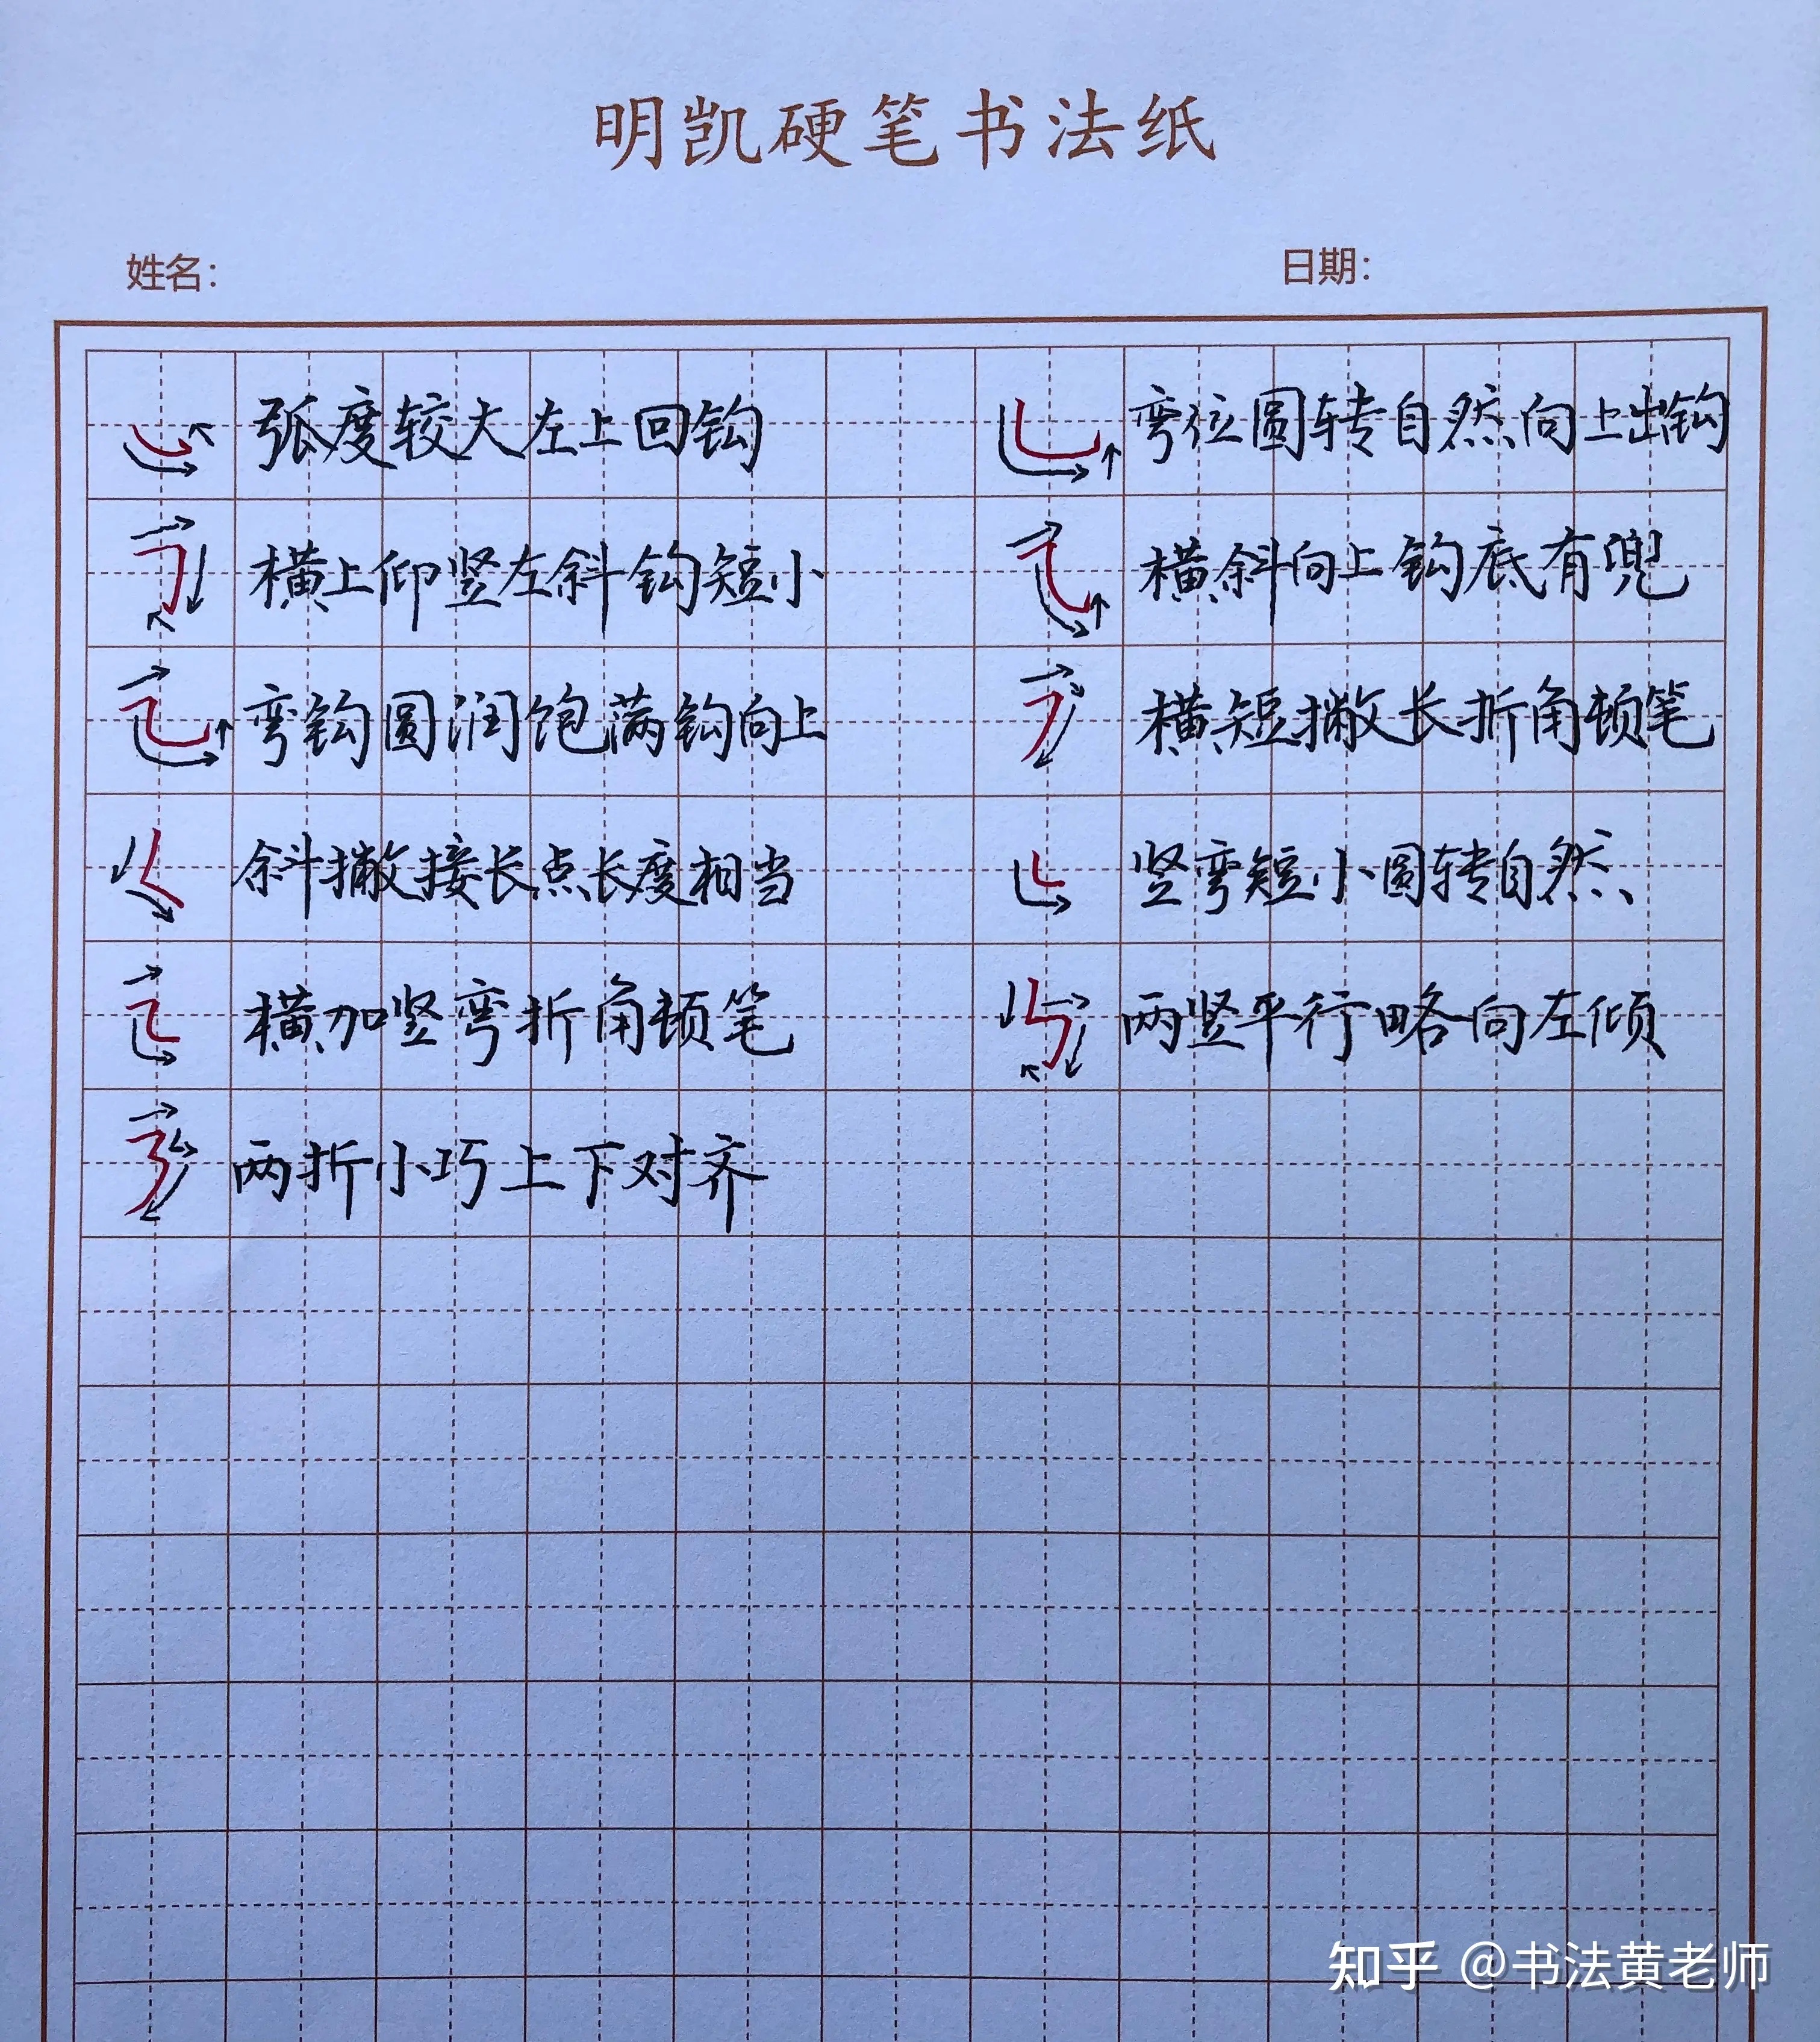 明凯硬笔书法纸
姓名： 日期：
弧度较大左上回钩 弯位圆转自然向上出钩
横上仰竖左斜钩短小 横斜向上钩底有兜
弯钩圆润饱满钩向上 横短撇长折角顿笔
斜撇接长点长度相当 竖弯短小圆转自然
横加竖弯折角顿笔 两竖平行略向左倾
两折小巧上下对齐
知乎 @书法黄老师